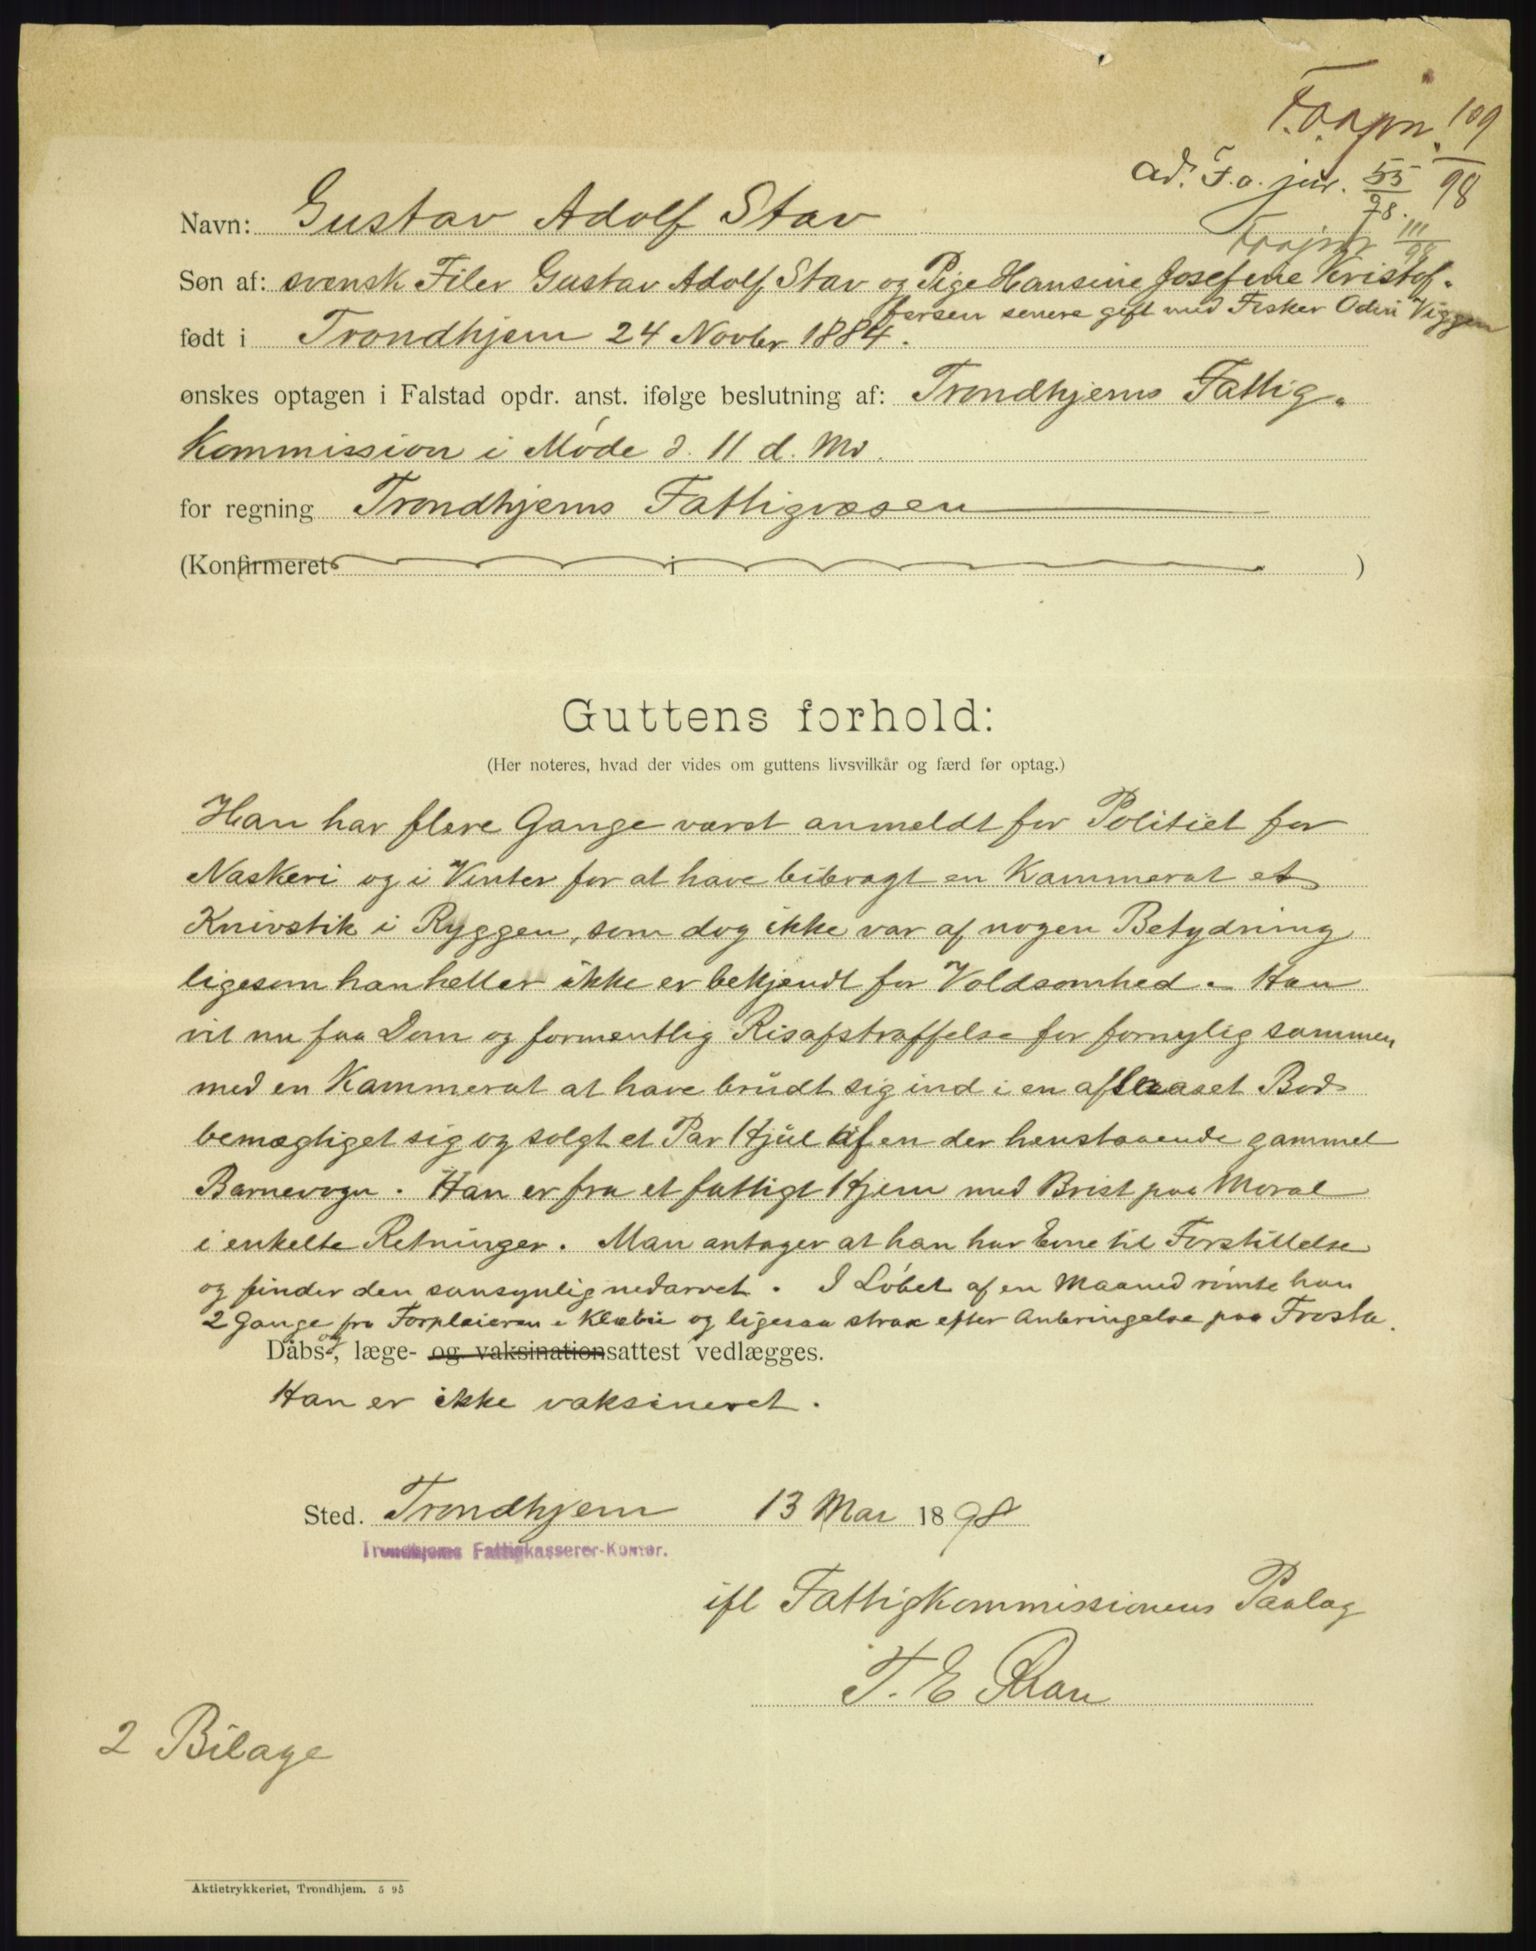 F.o.jrn. 109/98
ad. F.o. jur. 55/98.
F.o.jrn 111/98
Navn: Gustav Adolf Stav
Søn af: svensk Filer Gustav Adolf Stav og Pige Hansine Josefine Kristof-
fersen senere gift med Fisker Odin Viggen
født i Trondhjem 24 Novbr 1884.
ønskes optagen i Falstad opdr. anst. ifølge beslutning af: Trondhjems Fattig-
kommission i Møde d. 11 d. Md.
for regning Trondhjems Fattigvæsen
(Konfirmeret i )
Guttens forhold:
(Her noteres, hvad der vides om guttens livsvilkår og færd før optag.)
Han har flere Gange været anmeldt for Politiet for
Naskeri og i Vinter for at have bibragt en Kammerat et
Knivstik i Ryggen, som dog ikke var af nogen Betydning
ligesom han heller ikke er bekjendt for Voldsomhed. - Han
vil nu faa Dom og formentlig Risafstraffelse for fornylig sammen
med en Kammerat at have brudt sig ind i en aflaaset Bod
bemægtiget sig og solgt et Par Hjul af en der henstaaende gammel
Barnevogn. Han er fra et fattigt Hjem med Brist paa Moral
i enkelte Retninger. Man antager at han har Evne til Forstillelse
og finder den sansynlig nedarvet. I Løbet af en Maaned rømte han
2 Gange fra Forpleieren i Klæbu og ligesaa strax efter Anbringelse paa Frosta.
Dåbs og, læge- og vaksinationsattest vedlægges.
Han er ikke vaksineret.
Sted. Trondhjem 13 Mai 1898
Trondhjems Fattigkasserer-Komør.
ifl Fattigkommissionens Paalæg
T. E. Rian
2 Bilage
Aktietrykkeriet, Trondhjem. 5 95